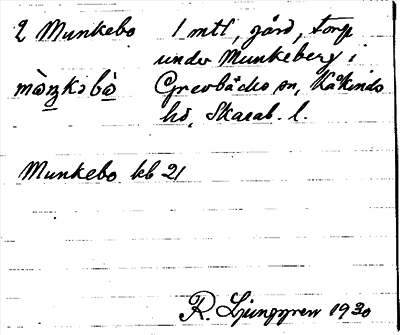 2 Munkebo 1 mtl, gård, torp
under Munkeberg i
mòŋkəbò Grevbäcks sn, Kåkinds
hd, Skarab. l.
Munkebo kb 21
R. Ljunggren 1930